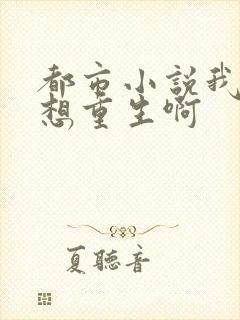 都市小説我
想重生啊
夏聽音